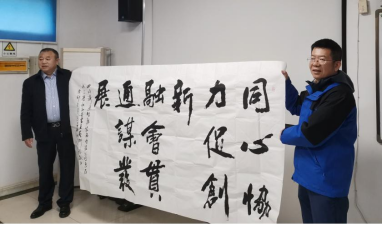 同心協
力促創
新
融會貫
通謀發
展